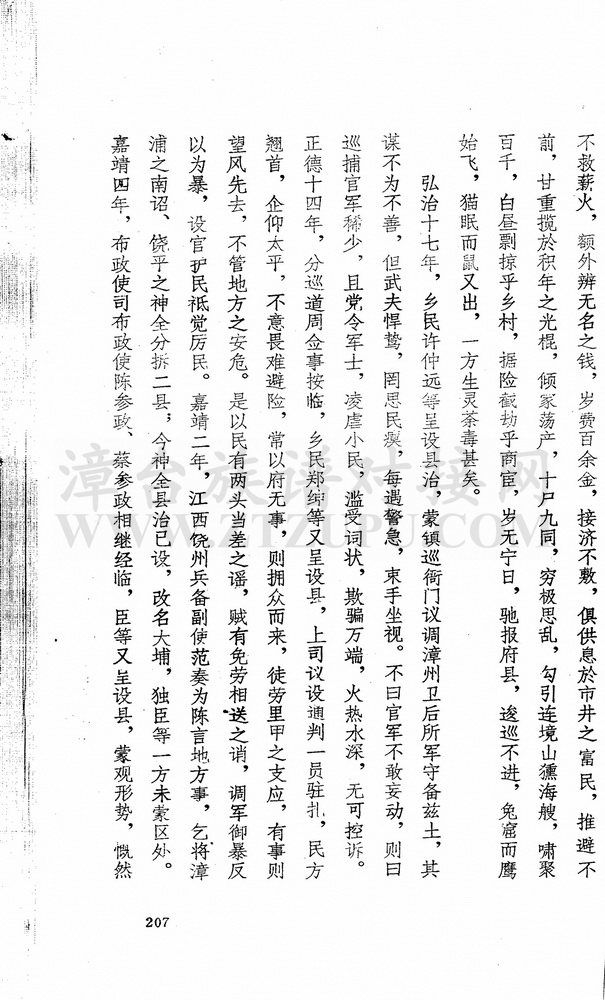 不救薪火，额外辨无名之钱，岁费百余金，接济不敷，俱供息於市井之富民，推避不
前，甘重揽於积年之光棍，倾冢荡产，十尸九同，穷极思乱，勾引连境山獞海艘，啸聚
百千，白昼剽掠乎乡村，据险截劫乎商宦，岁无宁日，驰报府县，逡巡不进，兔窟而鹰
始飞，猫眠而鼠又出，一方生灵荼毒甚矣。
弘治十七年，乡民许仲远等呈设县治，蒙镇巡衙门议调漳州卫后所军守备兹土，其
谋不为不善，但武夫悍鸷，罔思民瘼，每遇警急，束手坐视。不曰官军不敢妄动，则曰
巡捕官军稀少，且党令军士，凌虐小民，滥受词状，欺骗万端，火热水深，无可控诉。
正德十四年，分巡道周佥事按临，乡民郑绅等又呈设县，上司议设通判一员驻扎，民方
翘首，企仰太平，不意畏难避险，常以府无事，则拥众而来，徒劳里甲之支应，有事则
望风先去，不管地方之安危。是以民有两头当差之谣，贼有免劳相送之诮，调军御暴反
以为暴，设官护民祗觉厉民。嘉靖二年，江西饶州兵备副使范奏为陈言地方事，乞将漳
浦之南诏、饶平之神全分拆二县；今神全县治已设，改名大埔，独臣等一方未蒙区处。
嘉靖四年，布政使司布政使陈参政、蔡参政相继经临，臣等又呈设县，蒙观形势，慨然
207
漳台族谱对接网
WWW.ZTZUPU.COM